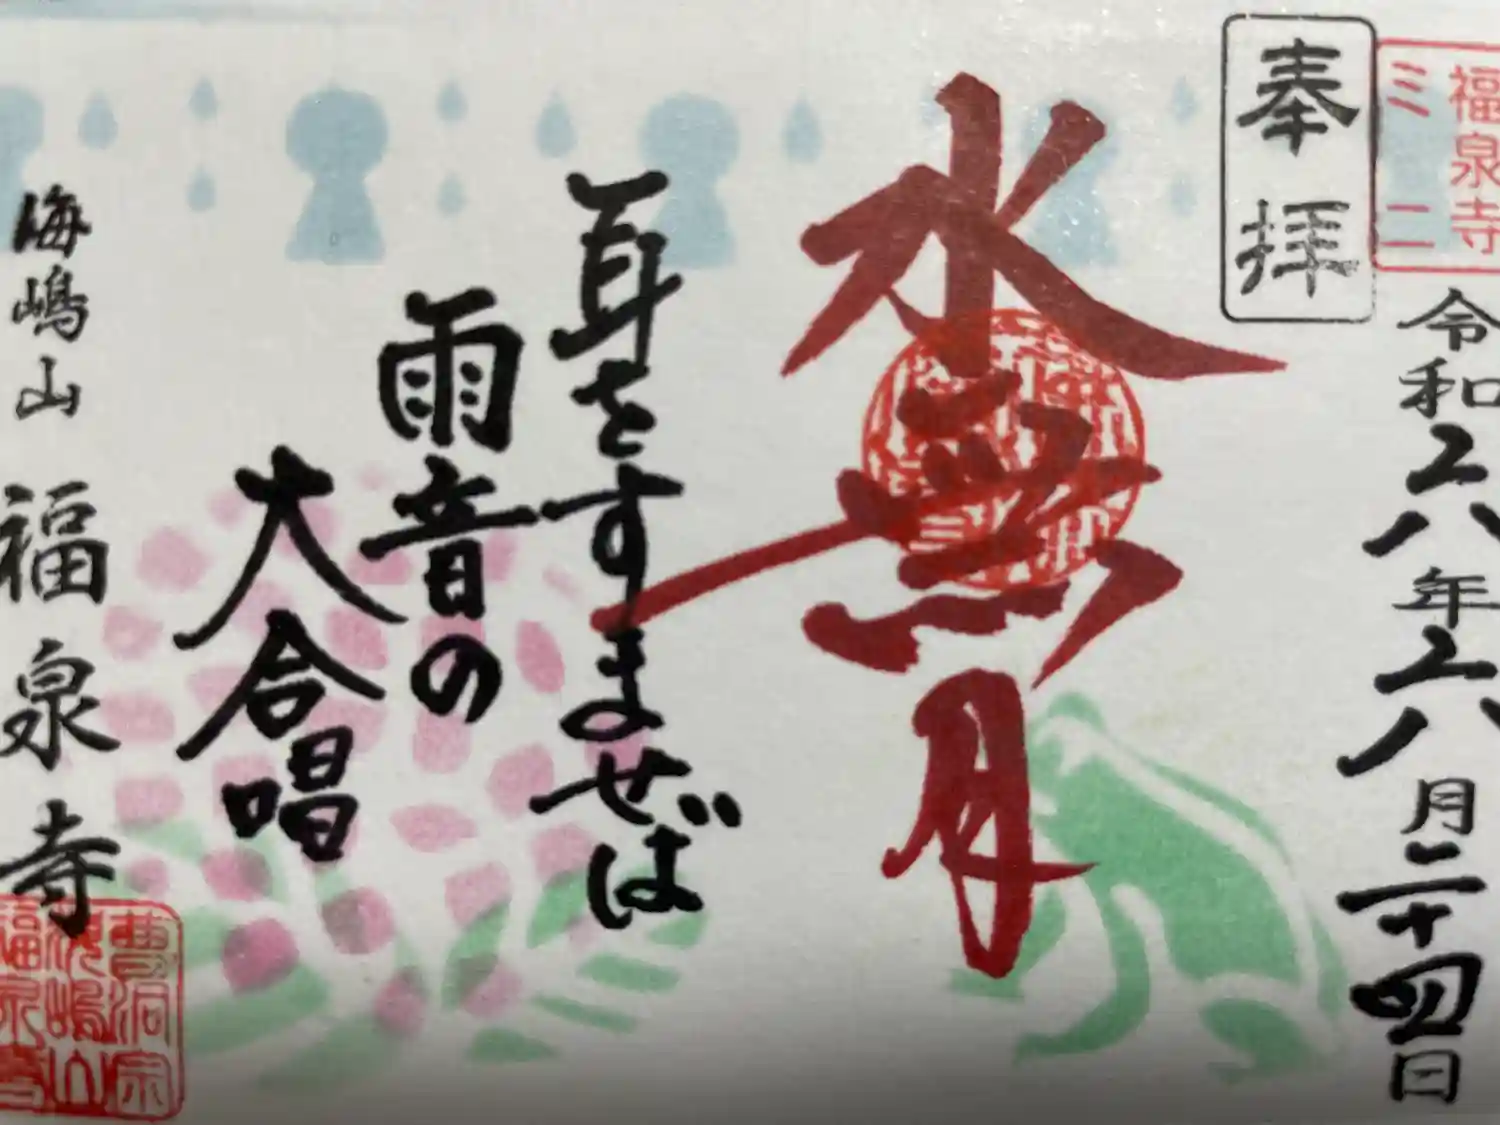 福泉寺
ミニ
令和六年六月二十四日
奉拝
水無月
耳をすませば
雨音の
大合唱
海嶋山 福泉寺
曹洞宗
海嶋山
福泉寺